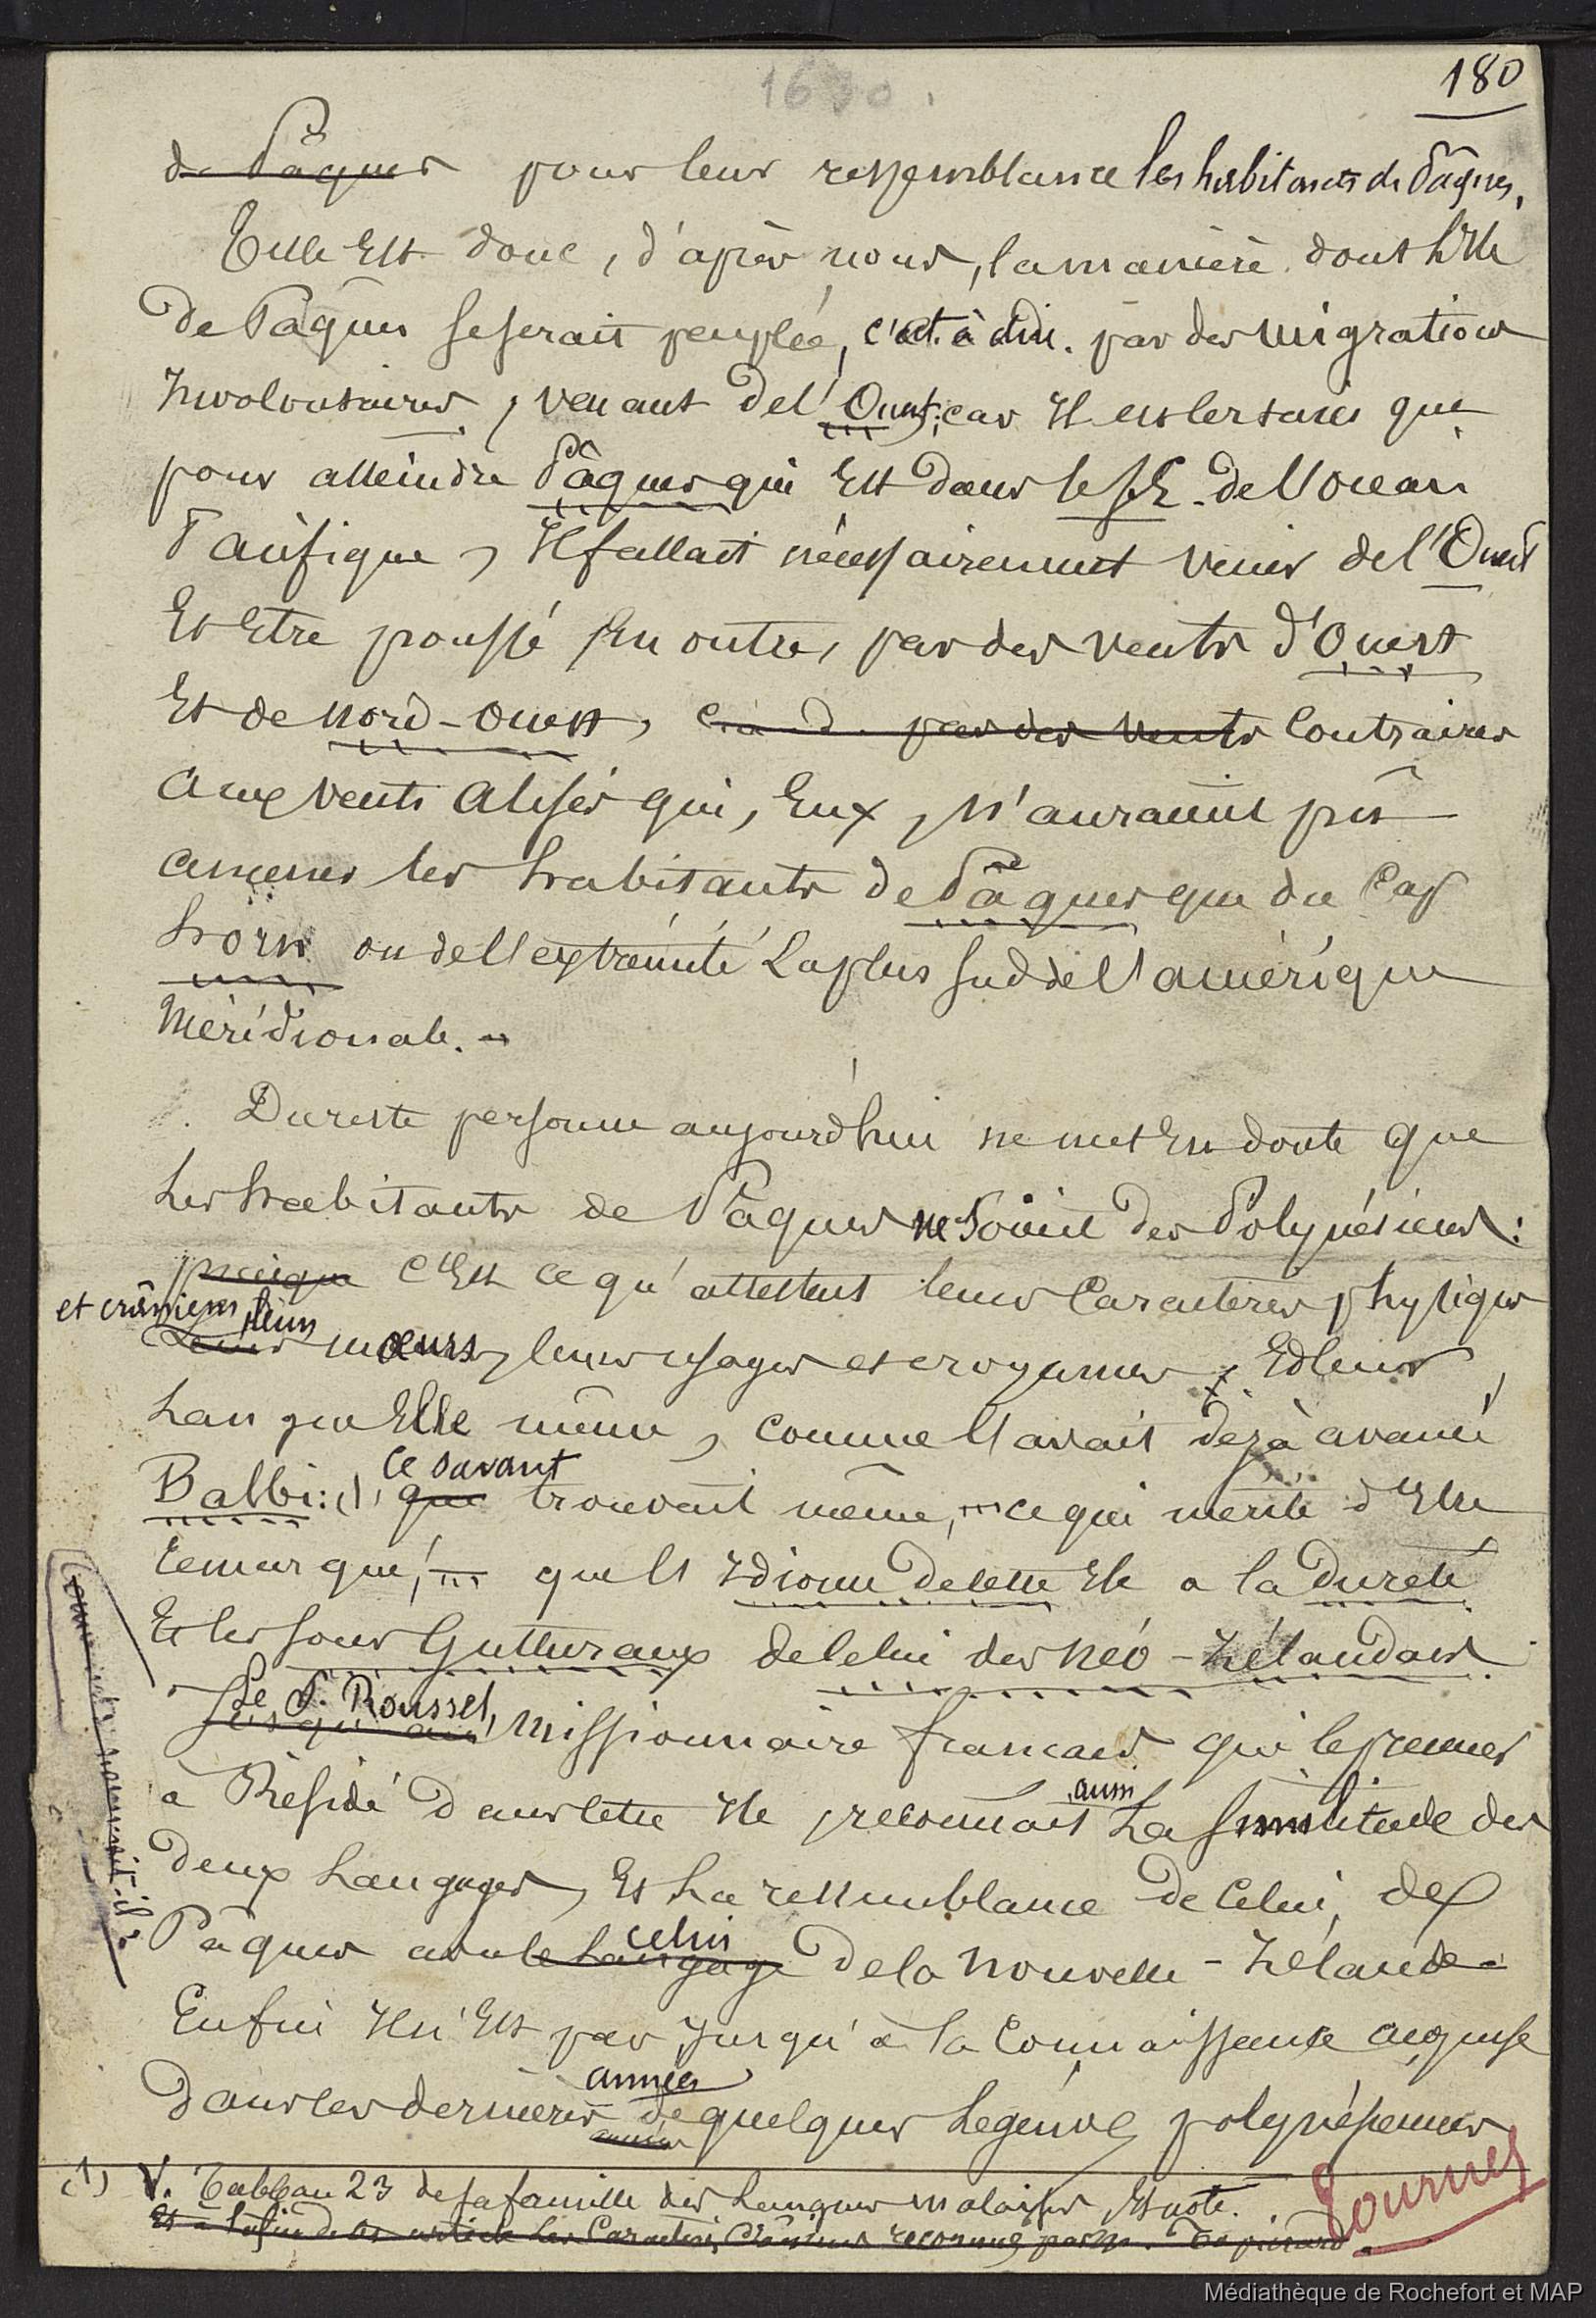 1630.
180
de Pâques pour leur ressemblance les habitants de Pâques.
Telle Est donc, d'après nous, la manière dont l'Ile
De Pâques se serait peuplée, c'est à dire par des migrations
Involontaires, venant de l'Ouest; car Il est certain que
pour atteindre Pâques qui Est dans le S.E. de l'océan
Pacifique, Il fallait nécessairement venir de l'Ouest
Et Etre poussé En outre, par des vents d'Ouest
Et de Nord-Ouest, c. à d. par des vents Contraires
aux vents alisés qui, Eux, N'auraient pû
amener les habitants de Pâques que du Cap
horn ou de l'extrémité La plus sud de l'amérique
Méridionale. -
Du reste personne aujourd'hui ne met En doute que
Les habitants de Pâques ne soient des Polynésiens:
puisque C'Est ce qu'attestent leurs Caractères physiques
et crâniens, leurs
Leurs mœurs, leurs usages et croyances, Et leur
Langue Elle même, comme l'avait déjà avancé
ce savant
Balbi: (1) que trouvait même, ... ce qui mérite d'Etre
remarqué, ... que l'Idiome de cette Ile a la dureté
Et les sons Gutturaux de celui des Néo-Zélandais.
Le P. Roussel,
Jusqu'au missionnaire français qui le premier
aussi
a Résidé Dans cette Ile, reconnait La similitude des
deux Langages, Et La ressemblance de Celui de
celui
Pâques avec le Langage De la Nouvelle-Zélande.
Enfin Il n'Est pas Jusqu'à la Connaissance acquise
années
Dans les dernières années de quelques Légendes polynésiennes
(1) V. Tableau 23 de sa famille des Langues malaises, Et note.
Et à la fin de cet article Les Caractères Crâniens reconnus par M.
Tournez
Médiathèque de Rochefort et MAP